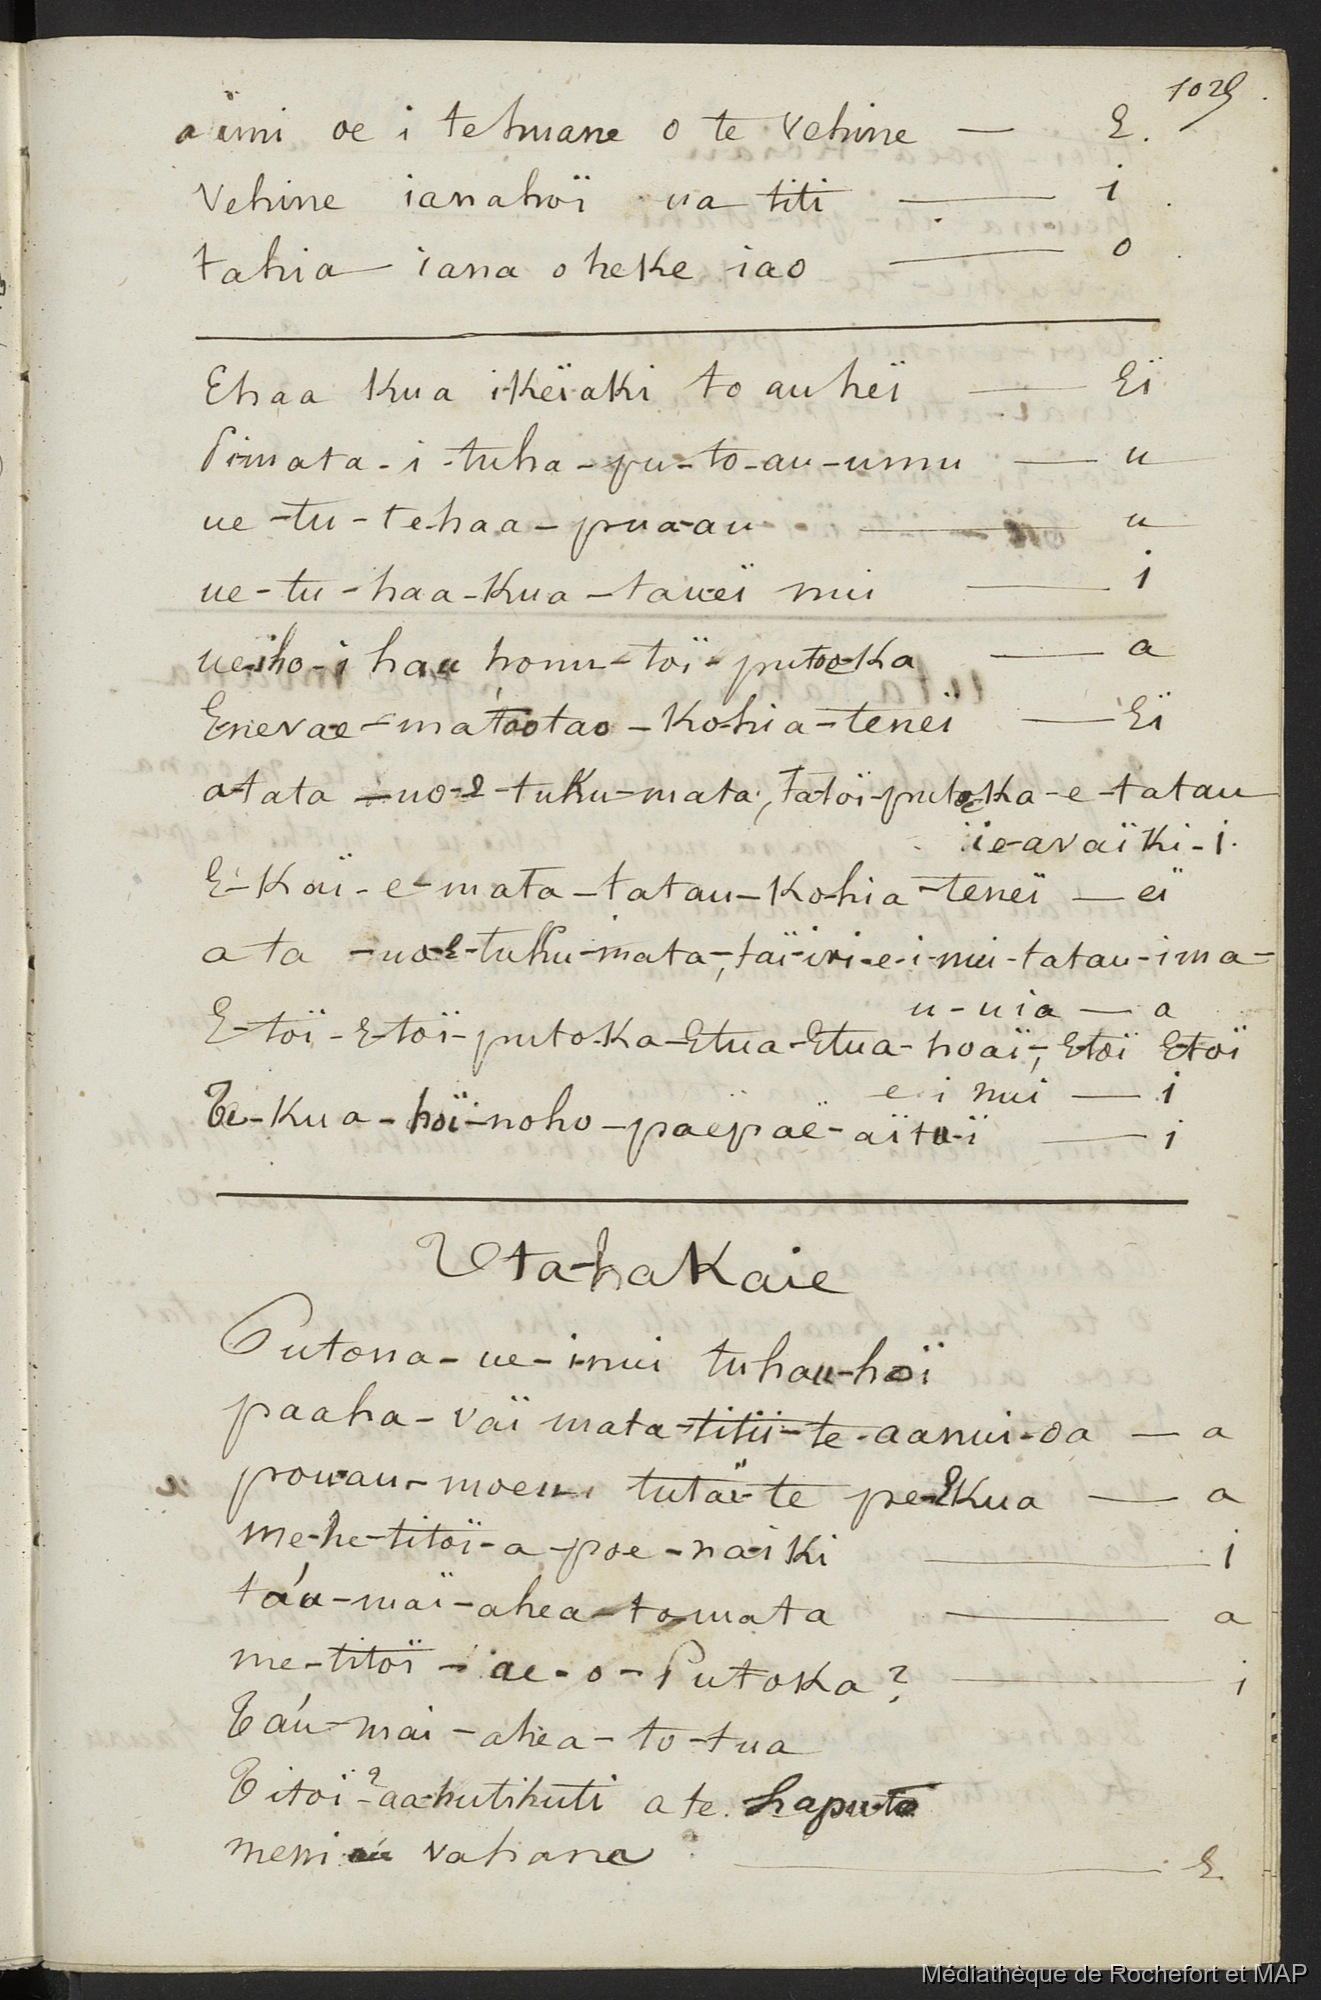 1029
aïmi oe i tehuane o te vehine — E.
Vehine ianahoï ua titi — i
tahia iana oheke iao — o
Ehaa kua ikeïaki to auheï — Eï
Pimata-i-tuha-pu-to-au-umu — u
ue-tu-tehaa-puaau — u
ue-tu-haa-Kua-taueï mui — i
ueiho-i hau honu-toï-putoKa — a
Enevae-matootao-Kohia-teneï — Eï
atata-uo-e-tuku-mata, tatoï-putoka-e-tatau
ie-avaïki-i.
E-Kaï-e-mata-tatau-Kohia-teneï — eï
ata-uo-e-tuku-mata, taï-iri-e-i-mui-tatau-ima-
u-uia — a
E-toï-Etoï-putoka-Etua-Etua-hoaï, Etoï Etoï
e i mui — i
Te-Kua-hoï-noho-paëpaë-aïtu-ï — i
Uta-haKaie
Putona-ue-imui tuhau-hoï
paaha-vaï mata-titii-te-aanui-oa — a
pouau-moeu tutaï-te pe-eKua — a
me-he-titoï-a-poe-naiki — i
táu-maï-ahea-tomata — a
me-titoï-ae-o-Putoka? — i
Táu-mai-ahea-to-tua
Titoï?-aahutihuti a te haputo
meni au vahana — E
Médiathèque de Rochefort et MAP